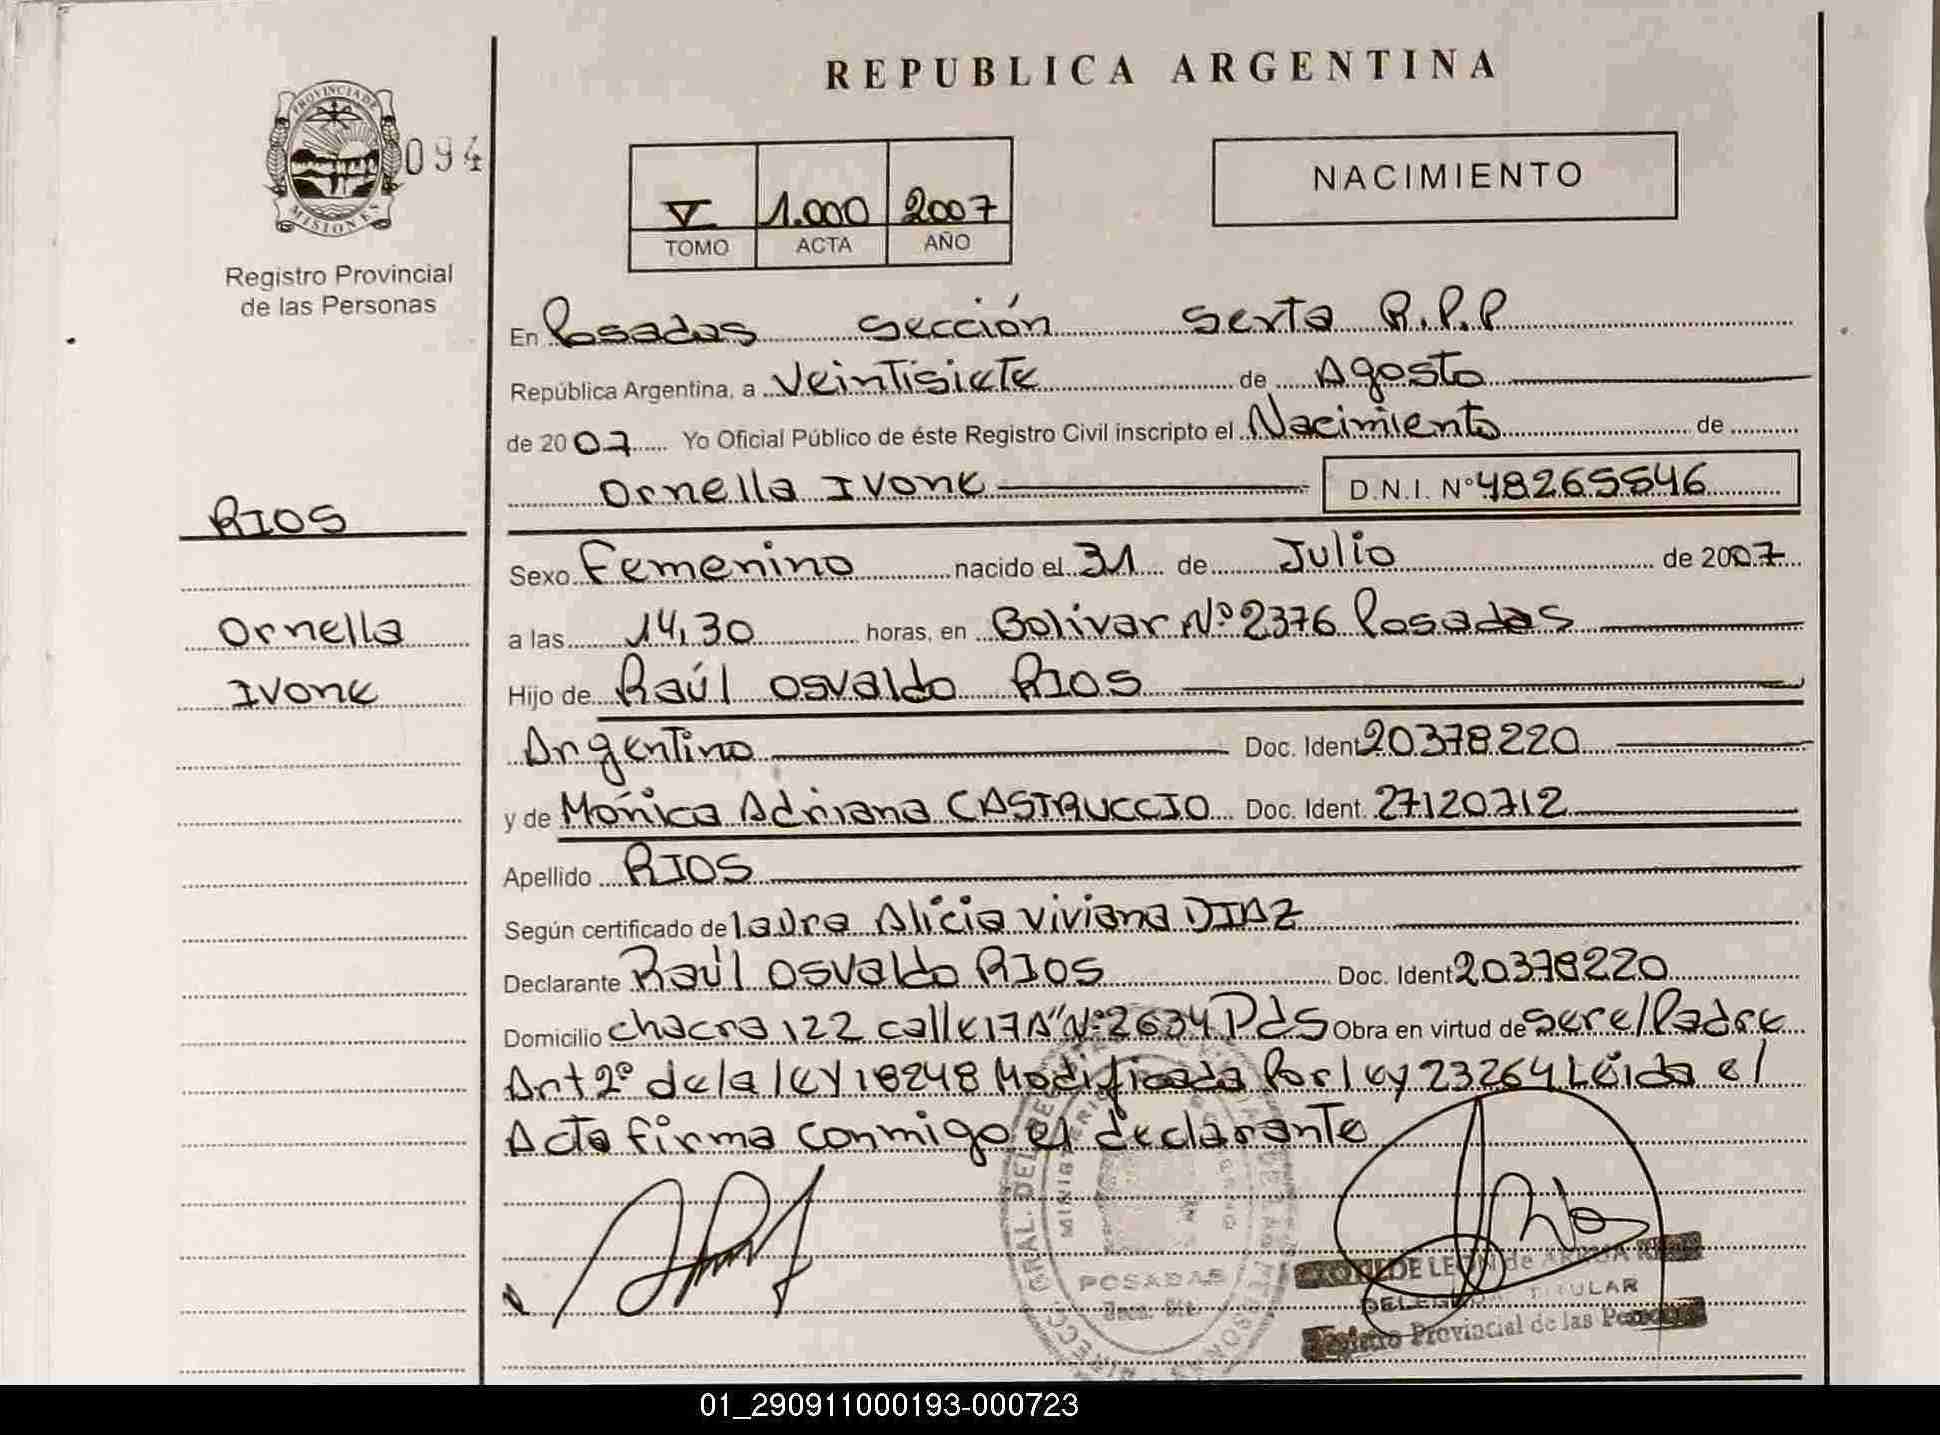 REPUBLICA ARGENTINA
PROVINCIA DE
MISIONES
094
Registro Provincial
de las Personas
V 1.000 2007
TOMO ACTA AÑO
NACIMIENTO
En Posadas Sección Sexta R.P.P
República Argentina, a Veintisiete de Agosto
de 2007 Yo Oficial Público de éste Registro Civil inscripto el Nacimiento de
Ornella Ivone D.N.I. Nº 48265546
RIOS
Ornella
Ivone
Sexo Femenino nacido el 31 de Julio de 2007
a las 14,30 horas, en Bolivar Nº 2376 Posadas
Hijo de Raúl Osvaldo RIOS
Argentino Doc. Ident 20378220
y de Mónica Adriana CASTRUCCIO Doc. Ident. 27120712
Apellido RIOS
Según certificado de Laura Alicia Viviana DIAZ
Declarante Raúl Osvaldo RIOS Doc. Ident 20378220
Domicilio chacra 122 calle 17 A" Nº 2634 Pds Obra en virtud de Ser el Padre
Art 2º de la ley 18248 Modificada Por ley 23264 Léida el
Acta firma conmigo el declarante
POSADAS
DE LEON de
DELEGADA TITULAR
Registro Provincial de las Personas
01_290911000193-000723